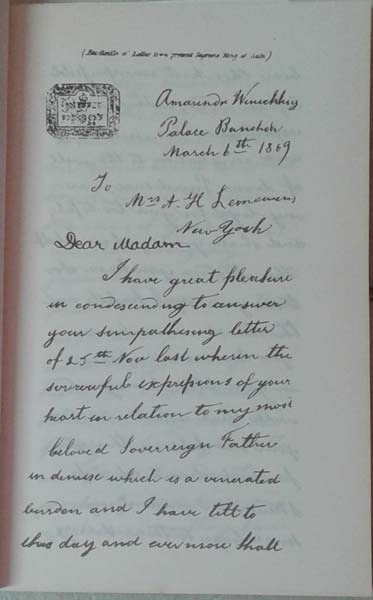 (Fac-Simile of Letter from present Supreme King of Siam)
Amarindr Winschley
Palace Bankok
March 6th 1869
To
Mrs A. H. Leonowens
New York
Dear Madam
I have great pleasure
in condescending to answer
your simpathising letter
of 25th Nov last wherein the
sorrowful expressions of your
heart in relation to my most
beloved Soverreign Father
in demise which is a venerated
burden and I have till to
this day and ever more shall